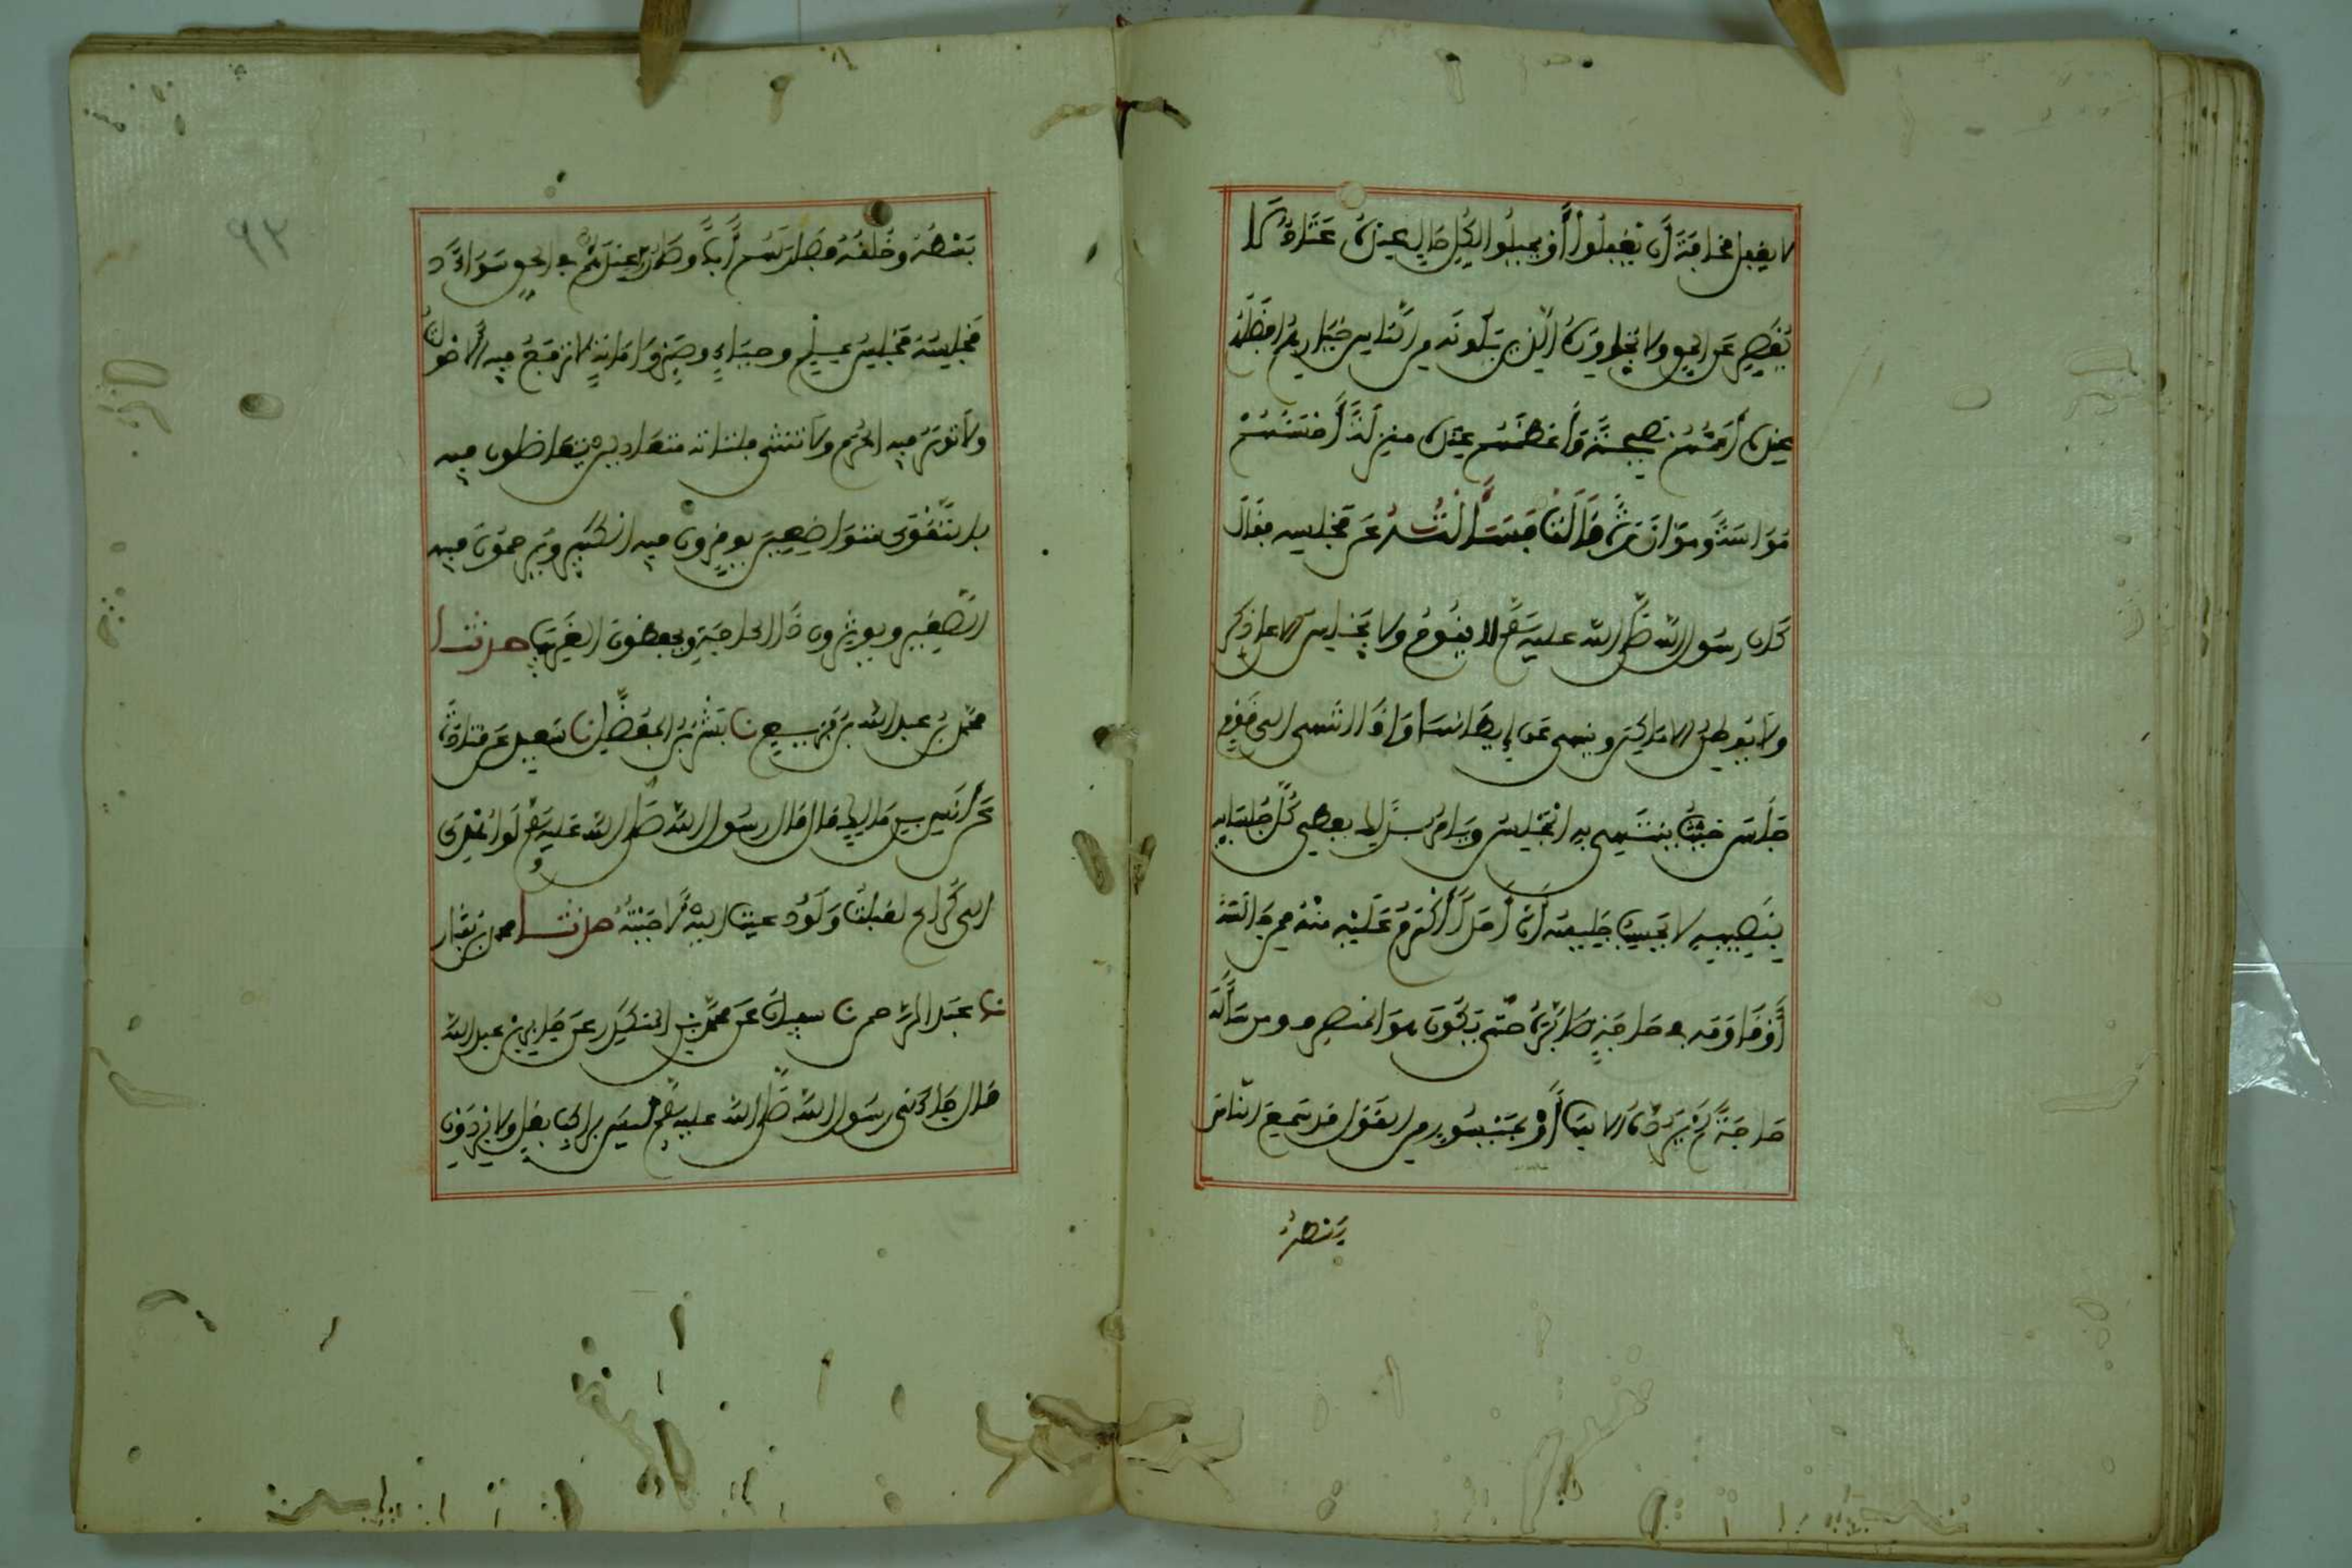 لا يغفل مخافة أن يغفلوا أو يميلوا لكل حال عنده عتاد لا
يقصر عن الحق ولا يجاوزه الذين يلونه من الناس خيارهم افضلهم
عنده أعمهم نصيحة وأعظمهم عنده منزلة أحسنهم
مواساة وموازرة قال فسألته عن مجلسه فقال
كان رسول الله صلى الله عليه وسلم لا يقوم ولا يجلس الا على ذكر
ولا يوطن الاماكن وينهى عن إيطانها وإذا انتهى الى قوم
جلس حيث ينتهي به المجلس ويامر بذلك يعطي كل جلسائه
بنصيبه لا يحسب جليسه أن أحدا أكرم عليه منه من جالسه
أو فاوضه في حاجة صابره حتى يكون هو المنصرف ومن سأله
حاجة لم يرده الا بها أو بميسور من القول قد سمع الناس
بسطه
٩٢
بسطه وخلقه فصار لهم أبا وصاروا عنده في الحق سواء
مجلسه مجلس علم وحياء وصبر وامانة لا ترفع فيه الاصوات
ولا توبن فيه الحرم ولا تنثى فلتاته متعادلين يتعاطون فيه
بالتقوى متواضعين يوقرون فيه الكبير ويرحمون فيه
الصغير ويوثرون ذا الحاجة ويحفظون الغريب حدثنا
محمد بن عبد الله بن بزيع نا بشر بن المفضل نا سعيد عن قتادة
عن أنس بن مالك قال قال رسول الله صلى الله عليه وسلم لو أهدي
الي كراع لقبلت ولو دعيت اليه لاجبت حدثنا محمد بن بشار
نا عبد الرحمن نا سفيان عن محمد بن المنكدر عن جابر بن عبد الله
قال جاءني رسول الله صلى الله عليه وسلم ليس براكب بغل ولا برذون